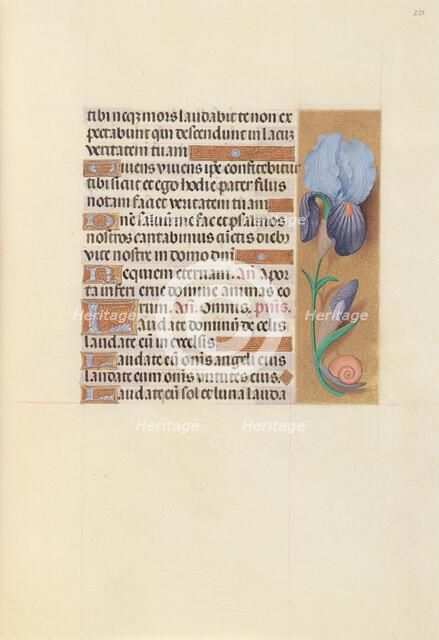 tibi neqʒ mors laudabit te non ex
pectabunt qui descendunt in lacū
veritatem tuam
Viuens viuens ipe confitebitur
tibi sicut et ego hodie pater filiis
notam faciet veritatem tuam
Dn̄e saluū me fac et psalmos
nostros cantabimus cūctis diebꝫ
vite nostre in domo dn̄i
Requiem eternam. Añ A por
ta inferi erue domine animas eo
rum. Añ. Omnis. p̄s.
Laudate dominū de celis
laudate eū in excelsis
Laudate eū om̄s angeli eius
laudate eum om̄s virtutes eius.
Laudate eū sol et luna lauda